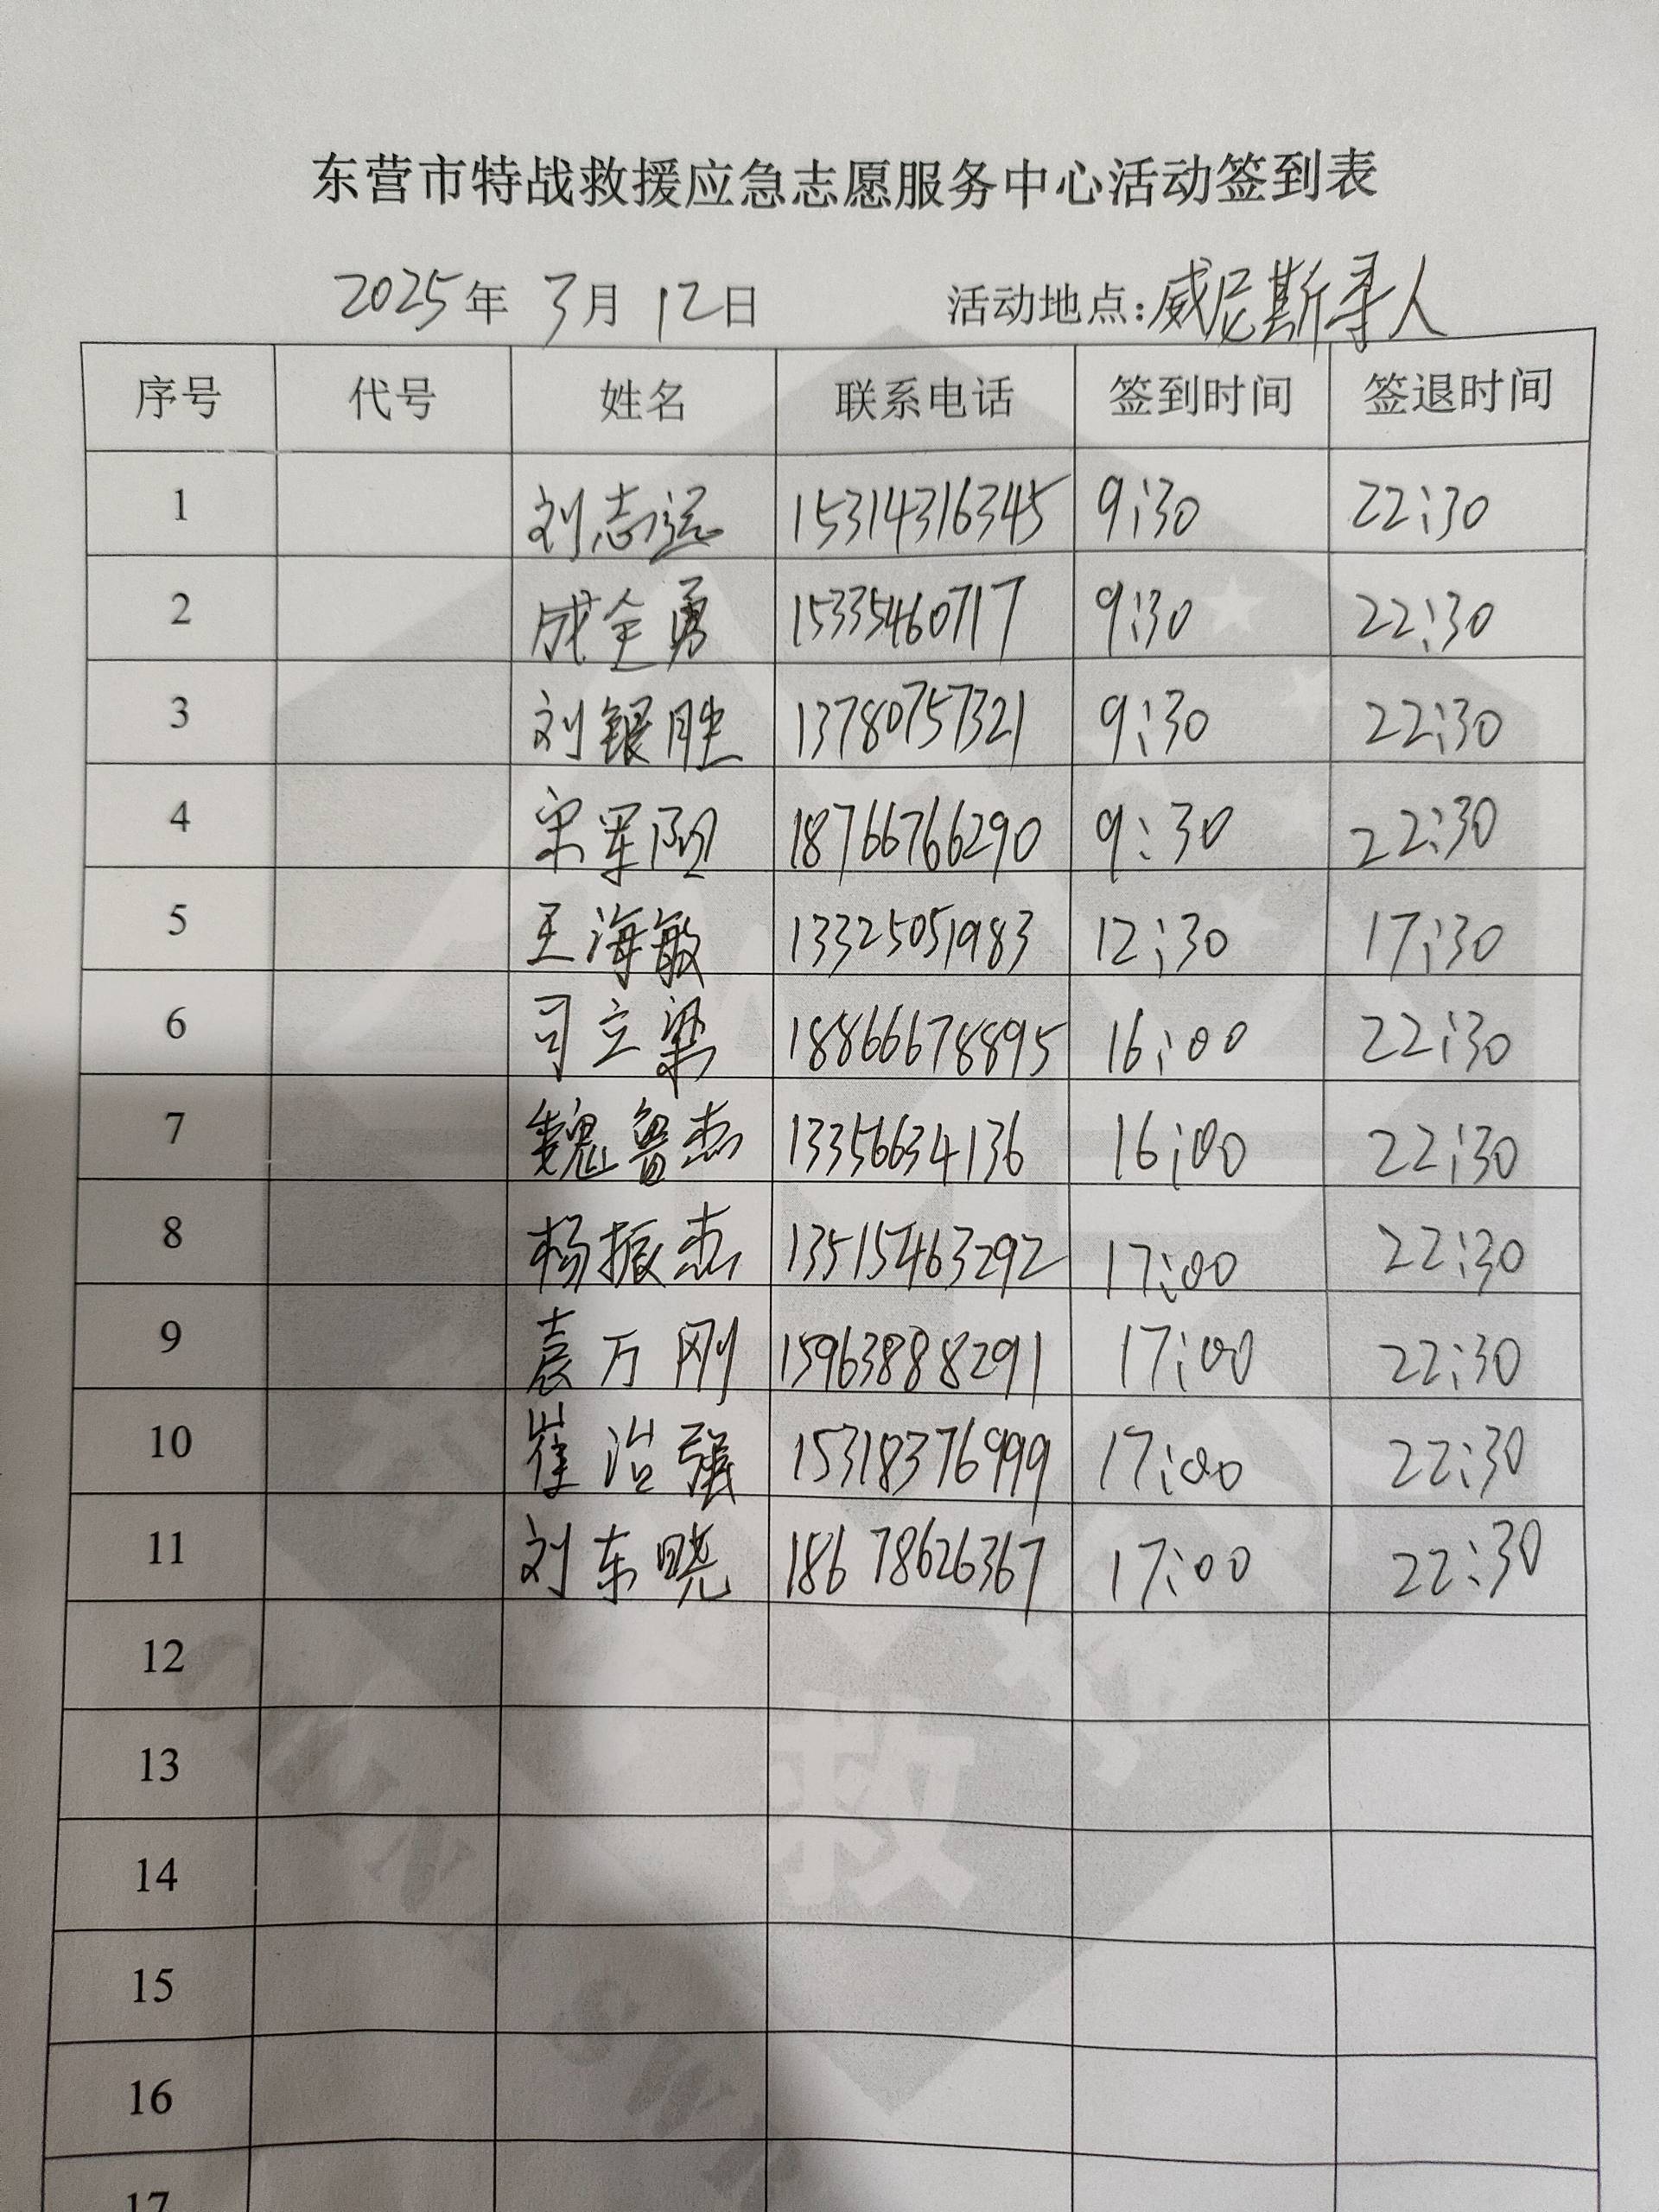 东营市特战救援应急志愿服务中心活动签到表
2025年 3月 12日 活动地点:威尼斯寻人
序号 代号 姓名 联系电话 签到时间 签退时间
1 刘志远 15314316345 9:30 22:30
2 成全勇 15335460717 9:30 22:30
3 刘银胜 13780757321 9:30 22:30
4 宋军 18766766290 9:30 22:30
5 王海敏 13325051983 12:30 17:30
6 司立梁 18866678895 16:00 22:30
7 魏鲁杰 13356634136 16:00 22:30
8 杨振杰 13515463292 17:00 22:30
9 袁万刚 15963888291 17:00 22:30
10 崔治强 15318376999 17:00 22:30
11 刘东晓 18678626367 17:00 22:30
12
13
14
15
16
17
救援